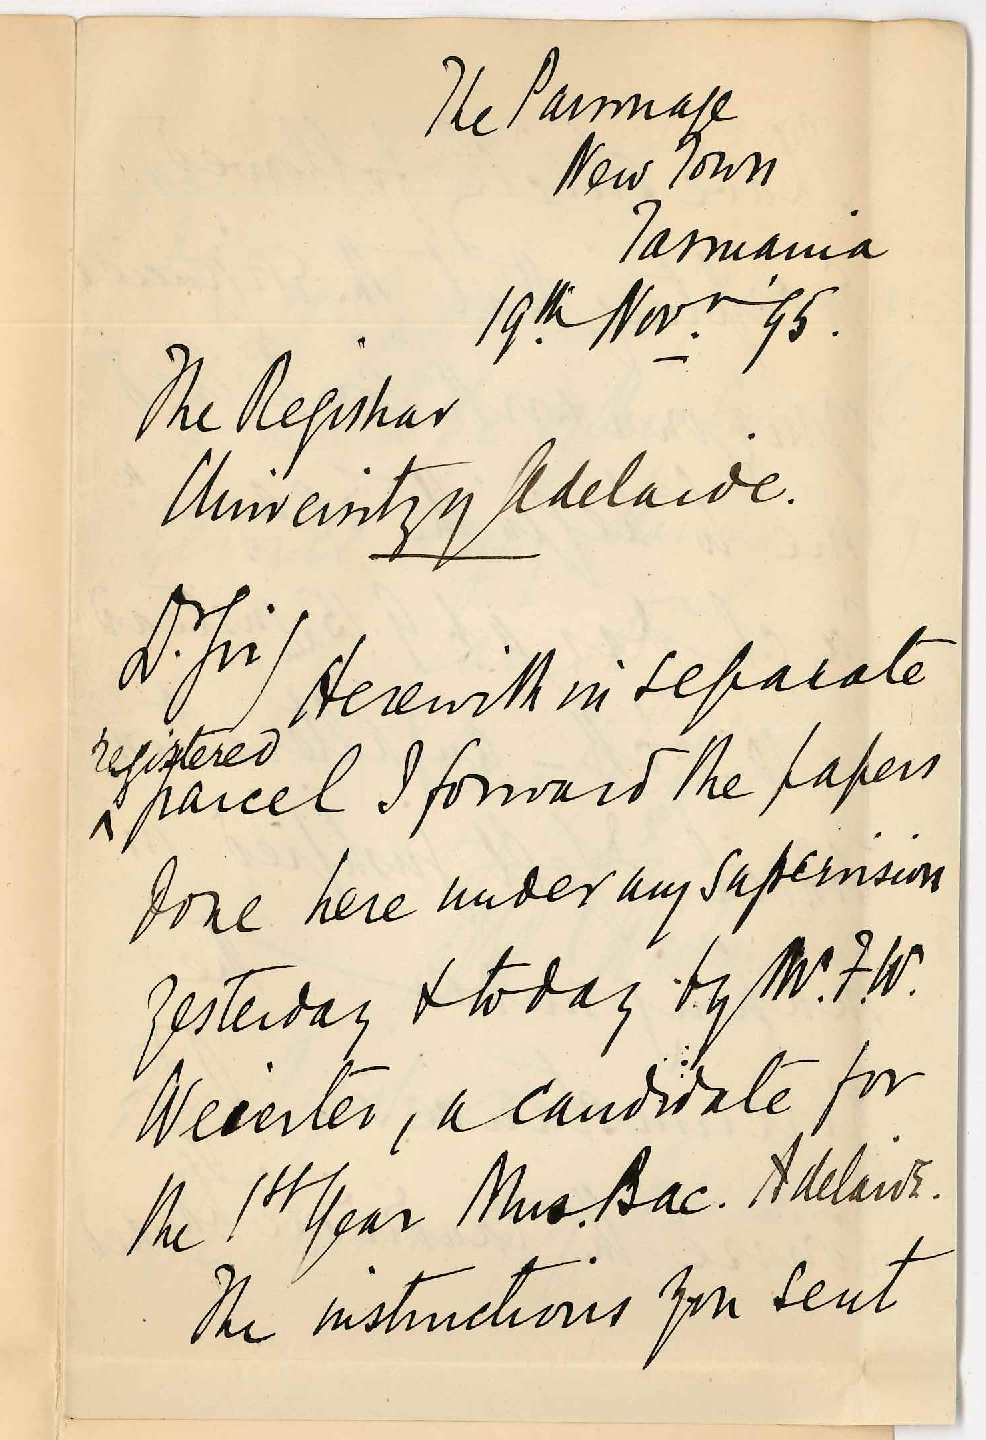 The Parsonage
New Town
Tasmania
19th Novr. '95.
The Registrar
University of Adelaide.
Dr. Sir/
Herewith in separate
registered
^ parcel I forward the papers
done here under my supervision
yesterday & today by Mr. F.W.
, a candidate for
the 1st Year Mus. Bac. Adelaide.
The instructions you sent